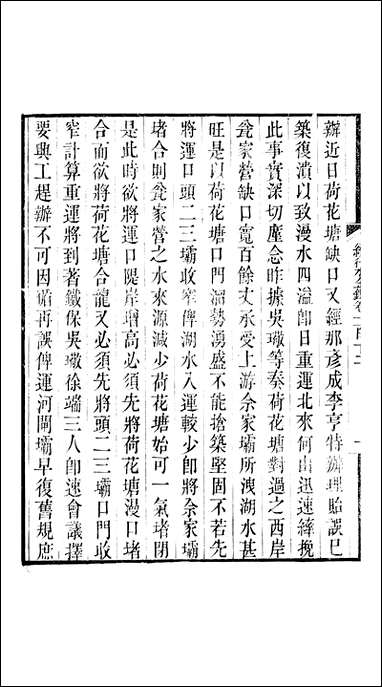 辦近日荷花塘缺口又經那彥成李亨特辦理貽誤已
築復潰以致漫水四溢卽日重運北來何由迅速絳挽
此事實深切廑念昨據吳璥等奏荷花塘對過之西岸
瓮家營缺口寬百餘丈承受上游余家壩所洩湖水甚
旺是以荷花塘口門溜勢湧盛不能搶築堅固不若先
將運口頭二三壩收窄俾湖水入運較少卽將余家壩
堵合則瓮家營之水來源減少荷花塘始可一氣堵閉
是此時欲將運口隄岸增高必須先將荷花塘漫口堵
合而欲將荷花塘合龍又必須先將頭二三壩口門收
窄計算重運將到著鐵保吳璥徐端三人卽速會議擇
要興工趕辦不可因循再誤俾運河閘壩早復舊規庶
續行水金鑑卷一百十二
一